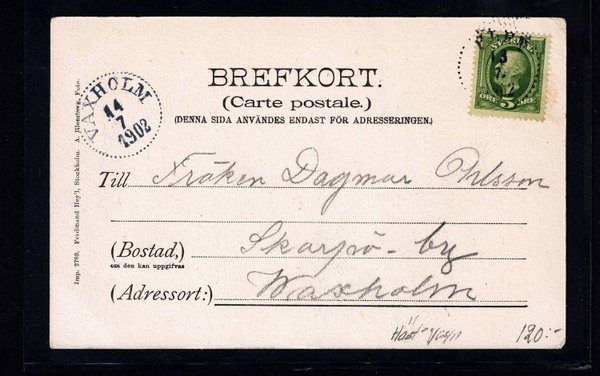 BREFKORT.
(Carte postale.)
(DENNA SIDA ANVÄNDES ENDAST FÖR ADRESSERINGEN.)
VAXHOLM
14
7
1902
SVERIGE
5
ÖRE
ÖRE
Till Fröken Dagmar Ohlsson
(Bostad,) Skarpö-by
om den kan uppgifvas
(Adressort:) Waxholm
Imp. 2789. Ferdinand Hey'l, Stockholm. A. Blomberg, Foto.
120:-